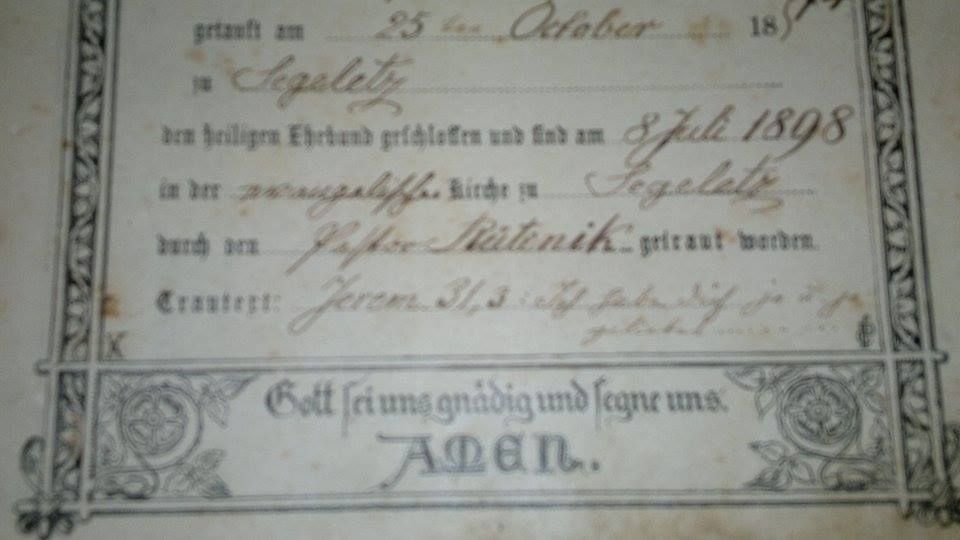 getauft am 25 ten October 18
zu Segeletz
den heiligen Ehebund geschlossen und sind am 8 Juli 1898
in der evangelischen Kirche zu Segeletz
durch den Pastor Rütenik getraut worden.
Trautext: Jerem. 31, 3: Ich habe dich je u je
geliebet
Gott sei uns gnädig und segne uns.
AMEN.